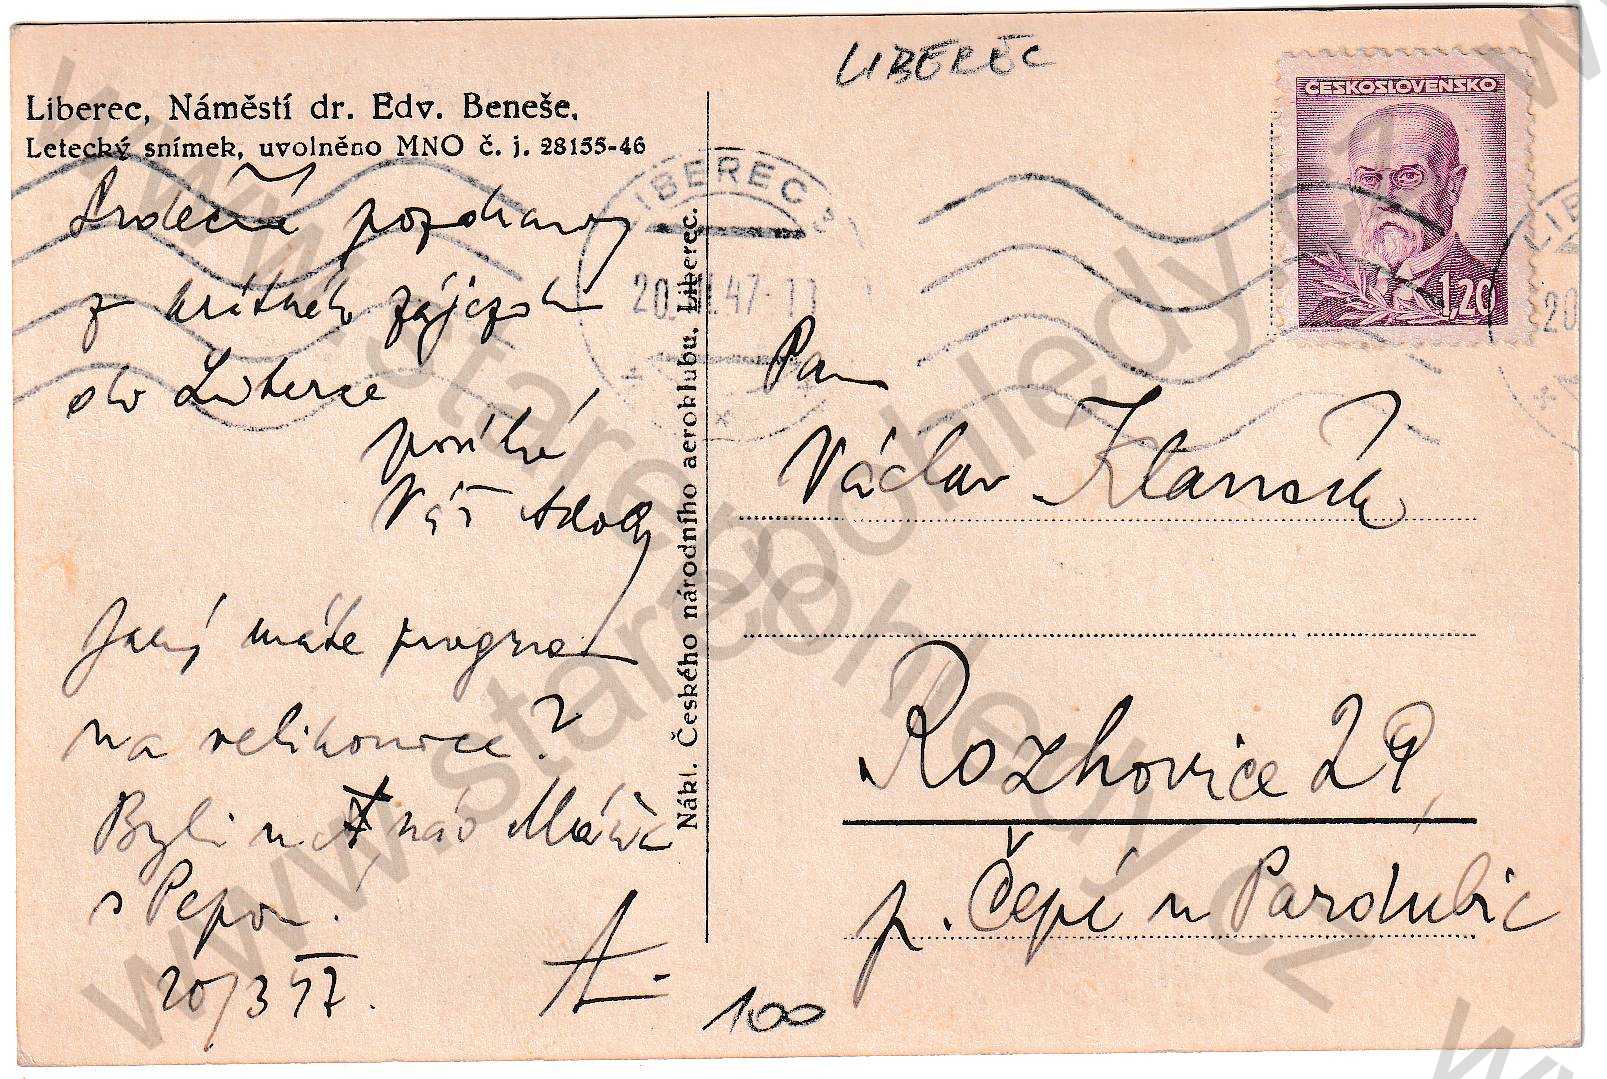 LIBEREC
Liberec, Náměstí dr. Edv. Beneše.
Letecký snímek, uvolněno MNO č. j. 28155-46
Srdečné pozdravy
z krátkého zájezdu
do Liberce
posílá
Váš
Jaký máte program
na velikonoce?
Byli u nás
s Pepou.
20/3 47.
100
Nákl. Českého národního aeroklubu, Liberec.
LIBEREC
20. 47
ČESKOSLOVENSKO
1,20
Pan
Václav
Rozhovice 29,
p. Čepí u Pardubic
www.starepohledy.cz